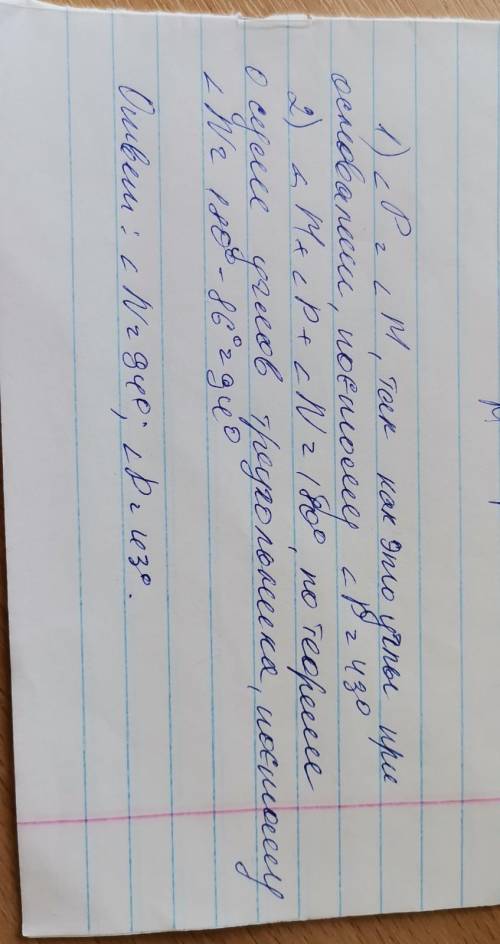 М
1) ∠P = ∠M, так как это углы при
основании, поэтому ∠P = 43°
2) ∠M + ∠P + ∠N = 180°, по теореме
о сумме углов треугольника, поэтому
∠N = 180° - 86° = 94°
Ответ: ∠N = 94°; ∠P = 43°.